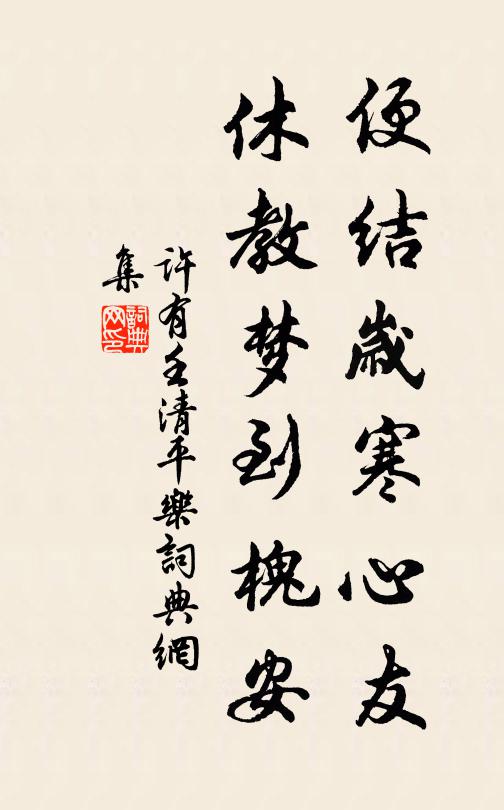 便结歲寒心友
休教梦到槐安
许有壬清平樂詞典網
集
詞典
网印